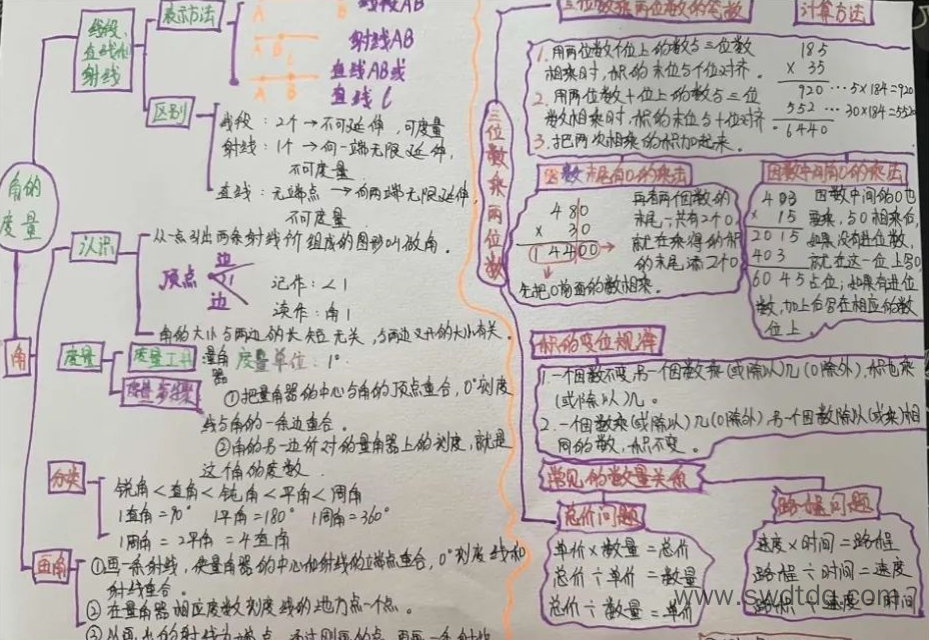 线段、
直线和
射线
表示方法
A B 线段AB
A B 射线AB
A B 直线AB或
直线 l
区别
线段：2个→不可延伸，可度量
射线：1个→向一端无限延伸，
不可度量
直线：无端点→向两端无限延伸，
不可度量
角的
度量
角
认识
从一点引出两条射线所组成的图形叫做角。
顶点
边
1
边
记作：∠1
读作：角1
角的大小与两边的长短无关，与两边叉开的大小有关。
度量
度量工具
量角
器
度量单位：1°
度量步骤
①把量角器的中心与角的顶点重合，0°刻度
线与角的一条边重合。
②角的另一边所对的量角器上的刻度，就是
这个角的度数
分类
锐角＜直角＜钝角＜平角＜周角
1直角=90° 1平角=180° 1周角=360°
1周角=2平角=4直角
画角
①画一条射线，使量角器的中心和射线的端点重合，0°刻度线和
射线重合。
②在量角器相应度数刻度线的地方点一个点。
三位数乘两位数
三位数乘两位数的笔算
计算方法
1.用两位数个位上的数与三位数
相乘时，积的末位与个位对齐。
2.用两位数十位上的数与三位
数相乘时，积的末位与十位对齐
3.把两次相乘的积加起来。
185
× 35
920 … 5×184=920
552 … 30×184=552
6440
因数末尾有0的乘法
480
× 30
14400
先把0前面的数相乘。
再看两个因数的
末尾一共有2个0
就在乘得的积
的末尾添2个0
因数中间有0的乘法
403
× 15
2015
403
6045
因数中间的0也
要乘，与0相乘后，
如果没有进位数，
就在这一位上写0
占位；如果有进位
数，加上后写在相应的数
位上。
积的变位规律
1.一个因数不变，另一个因数乘(或除以)几(0除外)，积也乘
(或除以)几。
2.一个因数乘(或除以)几(0除外)，另一个因数除以(或乘)相
同的数，积不变。
常见的数量关系
总价问题
单价×数量=总价
总价÷单价=数量
总价÷数量=单价
路程问题
速度×时间=路程
路程÷时间=速度
路程÷速度=时间
www.swdtdq.com